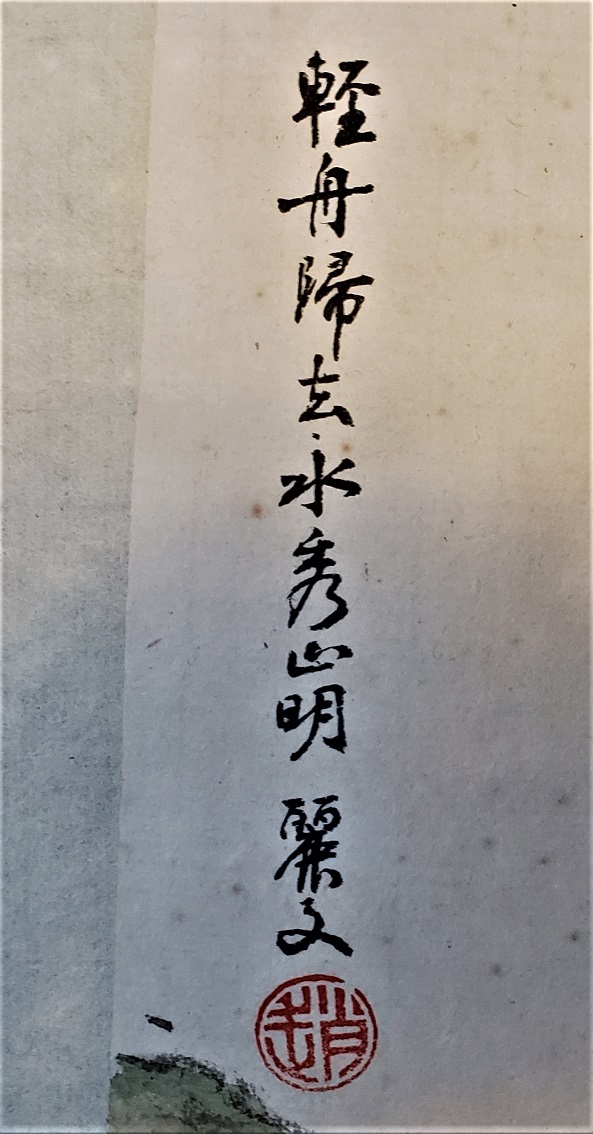 輕舟歸去水秀山明 麗文
趙